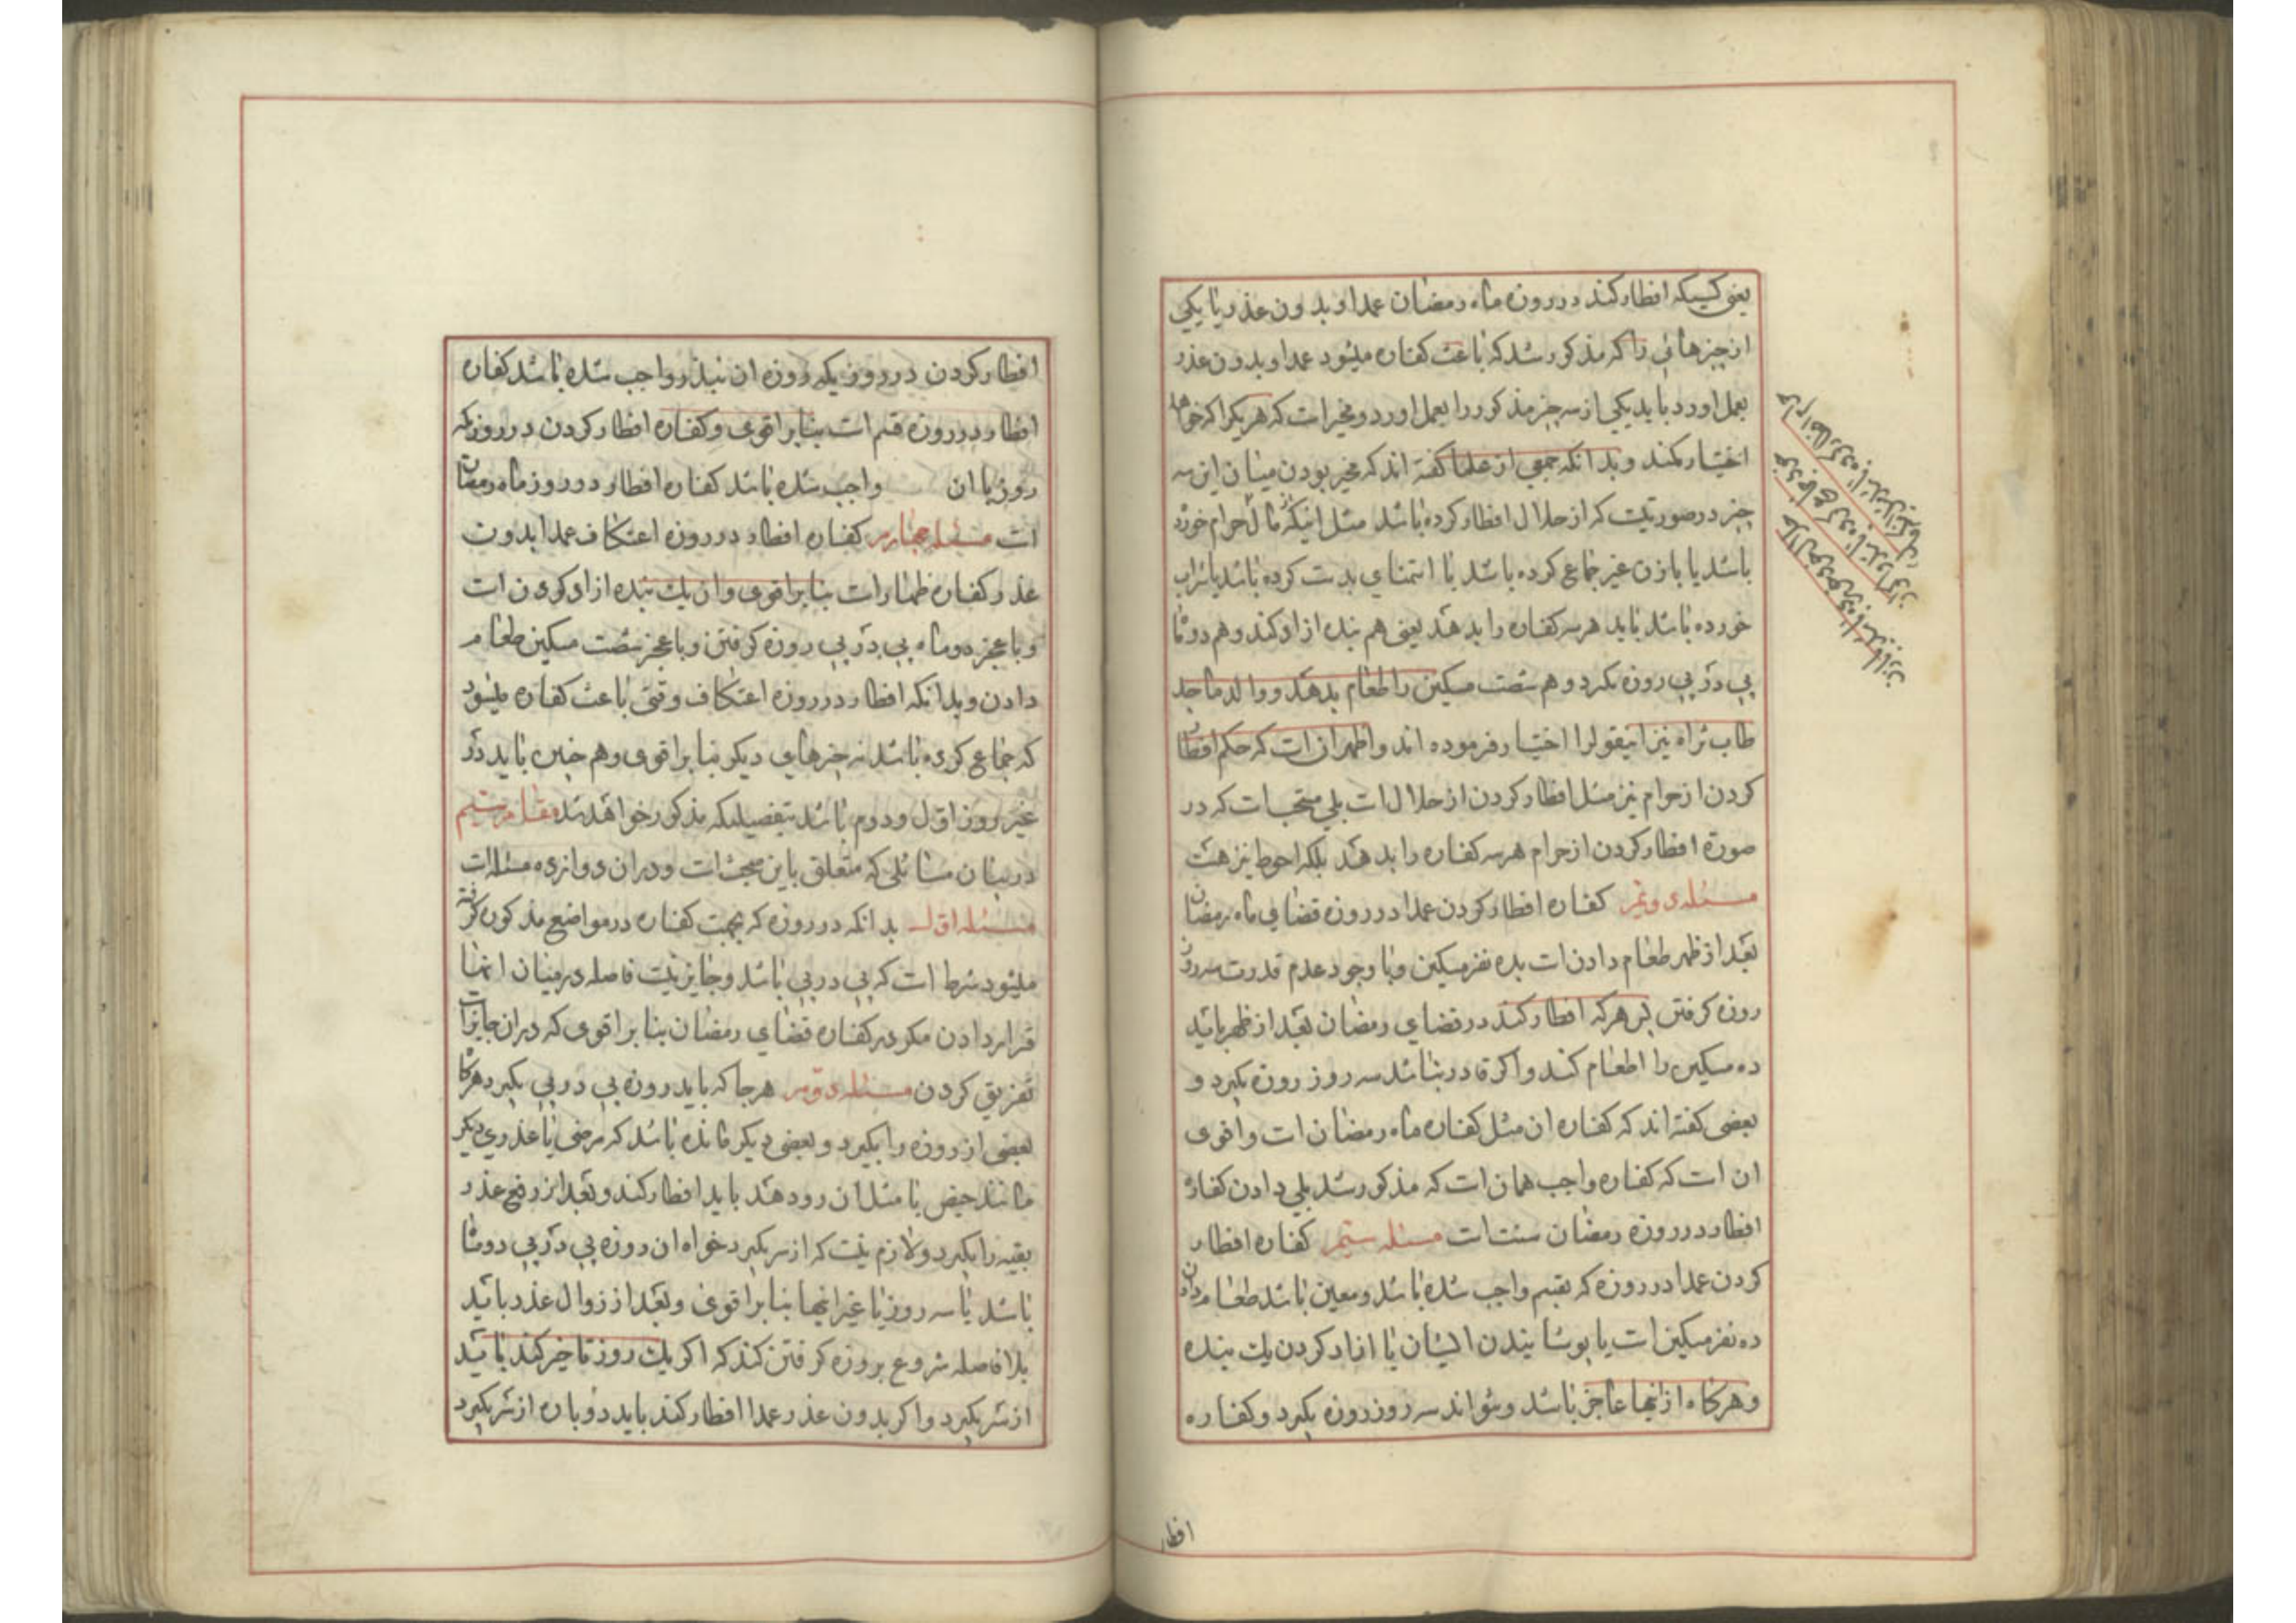 یعنی کسیکه افطار کند در روزه ماه رمضان عمدا و بدون عذر و یا یکی
از چیزهائی را که مذکور شد که باعث کفاره میشود عمدا و بدون عذر
بعمل اورد باید یکی از سه چیز مذکور را بعمل اورد و مخیر است که هر یکرا که خواهد
اختیار کند و بدانکه جمعی از علما گفته اند که مخیر بودن میان این سه
چیز در صورتیست که از حلال افطار کرده باشد مثل اینکه مال حرام خورده
باشد یا با زن غیر جماع کرده باشد یا استمنای بدست کرده باشد یا شراب
خورده باشد باید هر سه کفاره را بدهد یعنی هم بنده ازاد کند و هم دو ماه
پی در پی روزه بگیرد و هم شصت مسکین را طعام بدهد و والد ماجد
طاب ثراه نیز اینقولرا اختیار فرموده اند و اظهر ان است که حکم افطار
کردن از حرام نیز مثل افطار کردن از حلال است بلی مستحب است که در
صورة افطار کردن از حرام هر سه کفاره را بدهد بلکه احوط نیز هست
مسئله دویم کفاره افطار کردن عمدا در روزه قضای ماه رمضان
بعد از ظهر طعام دادن است بده نفر مسکین و با وجود عدم قدرت سه روز
روزه گرفتن پس هر که افطار کند در قضای رمضان بعد از ظهر باید
ده مسکین را اطعام کند و اگر قادر نباشد سه روز روزه بگیرد و
بعضی گفته اند که کفاره ان مثل کفاره ماه رمضان است و اقوی
ان است که کفاره واجب همان است که مذکور شد بلی دادن کفاره
افطار در روزه رمضان سنت است مسئله سیم کفاره افطار
کردن عمدا در روزه که بقسم واجب شده باشد و معین باشد طعام دادن
ده نفر مسکین است یا پوشانیدن ایشان یا ازاد کردن یک بنده
و هر گاه از اینها عاجز باشد و نتواند سه روز روزه بگیرد و کفاره
افطار
افطار کردن در روزیکه روزه ان بنذر واجب شده باشد کفاره
افطار در روزه قسم است بنا بر اقوی و کفاره افطار کردن در روزیکه
روزه ان واجب شده باشد کفاره افطار در روز ماه رمضان
است مسئله چهارم کفاره افطار در روزه اعتکاف عمدا بدون
عذر کفاره ظهار است بنا بر اقوی و ان یک بنده ازاد کردن است
و با عجز دو ماه پی در پی روزه گرفتن و با عجز شصت مسکین طعام
دادن و بدانکه افطار در روزه اعتکاف وقتی باعث کفاره میشود
که جماع کرده باشد نه چیزهای دیگر بنا بر اقوی و هم چنین باید در
غیر روز اول و دوم باشد بتفصیلیکه مذکور خواهد شد مقام سیم
در بیان مسائلی که متعلق باین مبحث است و در ان دوازده مسئله است
مسئله اول بدانکه در روزه که بجهت کفاره در مواضع مذکوره گرفته
میشود شرط است که پی در پی باشد و جایز نیست فاصله در میان انها
قرار دادن مگر در کفاره قضای رمضان بنا بر اقوی که در ان جایز است
تفریق کردن مسئله دوم هر جا که باید روزه پی در پی بگیرد هر گاه
بعضی از روزه را بگیرد و بعضی دیگر مانده باشد که مرضی یا عذری دیگر
مانند حیض یا مثل ان رو دهد باید افطار کند و بعد از رفع عذر
بقیه را بگیرد و لازم نیست که از سر بگیرد خواه ان روزه پی در پی دو ماه
باشد یا سه روز یا غیر انها بنا بر اقوی و بعد از زوال عذر باید
بلا فاصله شروع بروزه گرفتن کند که اگر یک روز تاخیر کند باید
از سر بگیرد و اگر بدون عذر عمدا افطار کند باید دوباره از سر بگیرد